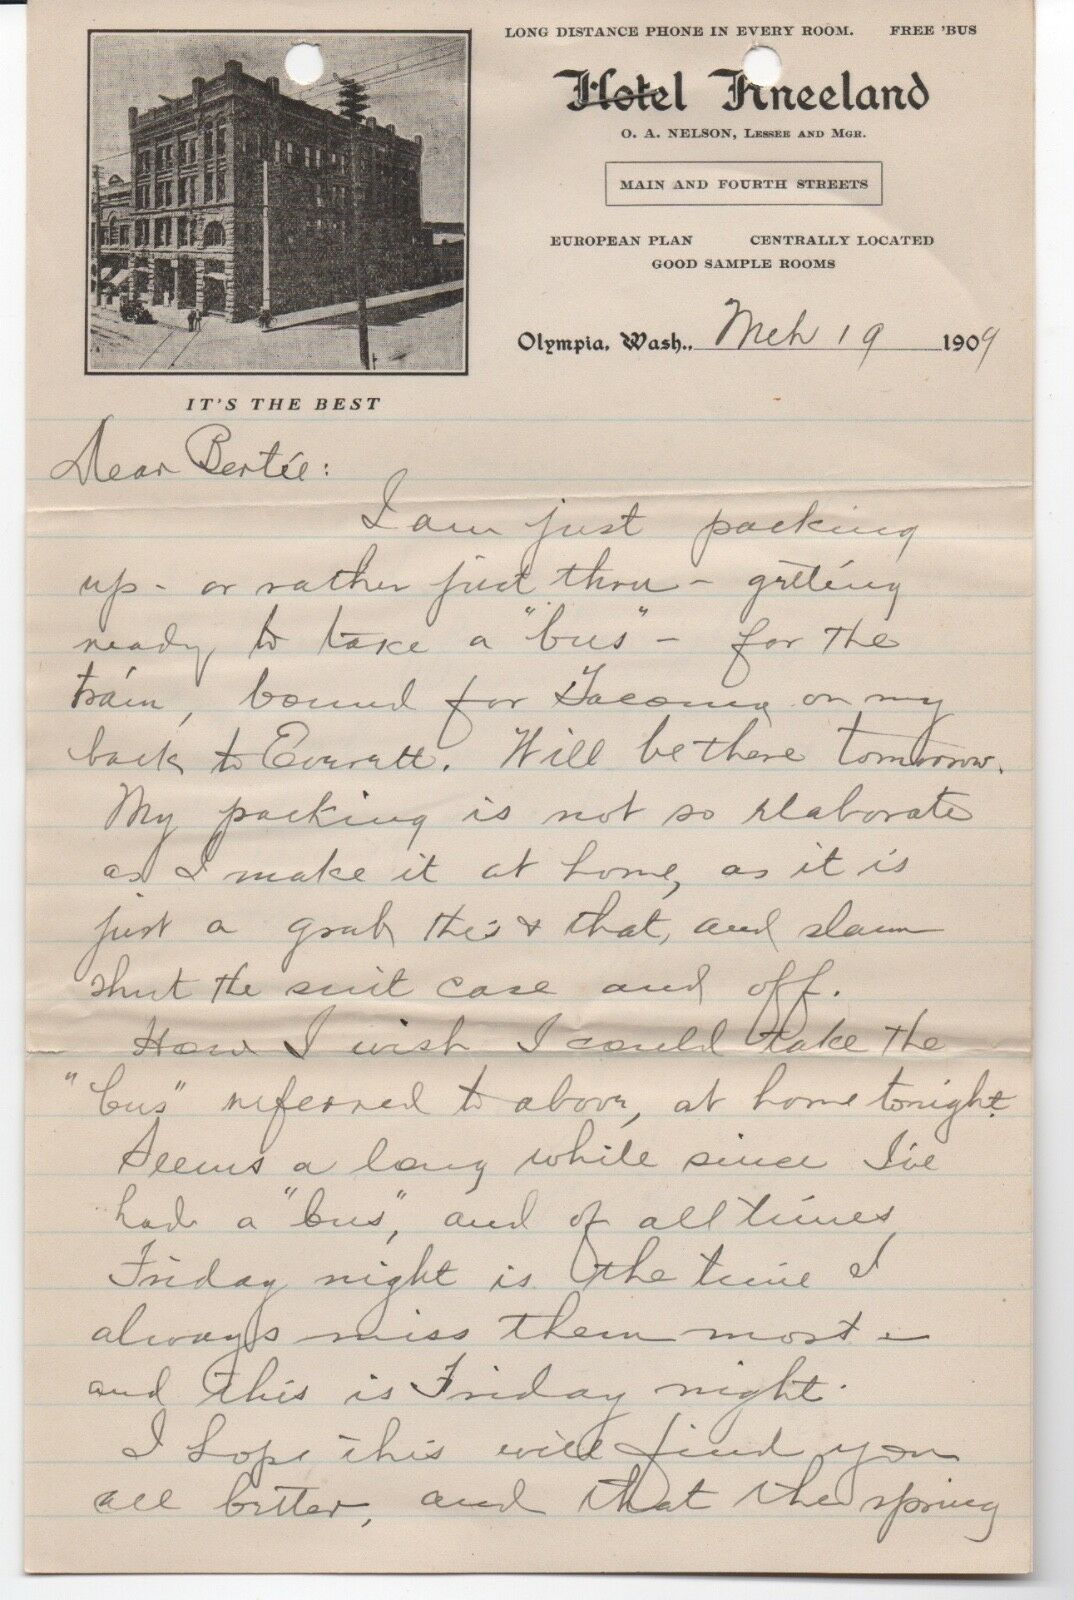 LONG DISTANCE PHONE IN EVERY ROOM. FREE 'BUS
Hotel Kneeland
O. A. NELSON, LESSEE AND MGR.
MAIN AND FOURTH STREETS
EUROPEAN PLAN CENTRALLY LOCATED
GOOD SAMPLE ROOMS
Olympia, Wash., Mch 19 1909
IT'S THE BEST
Dear Bertie:
I am just packing
up - or rather just thru - getting
ready to take a "bus" - for the
train, bound for Tacoma on my
back to Everett. Will be there tomorrow.
My packing is not so elaborate
as I make it at home, as it is
just a grab this & that, and slam
shut the suit case and off.
How I wish I could take the
"bus" referred to above, at home tonight.
Seems a long while since I've
had a "bus", and of all times
Friday night is the time I
always miss them most -
and this is Friday night.
I hope this will find you
all better, and that the spring